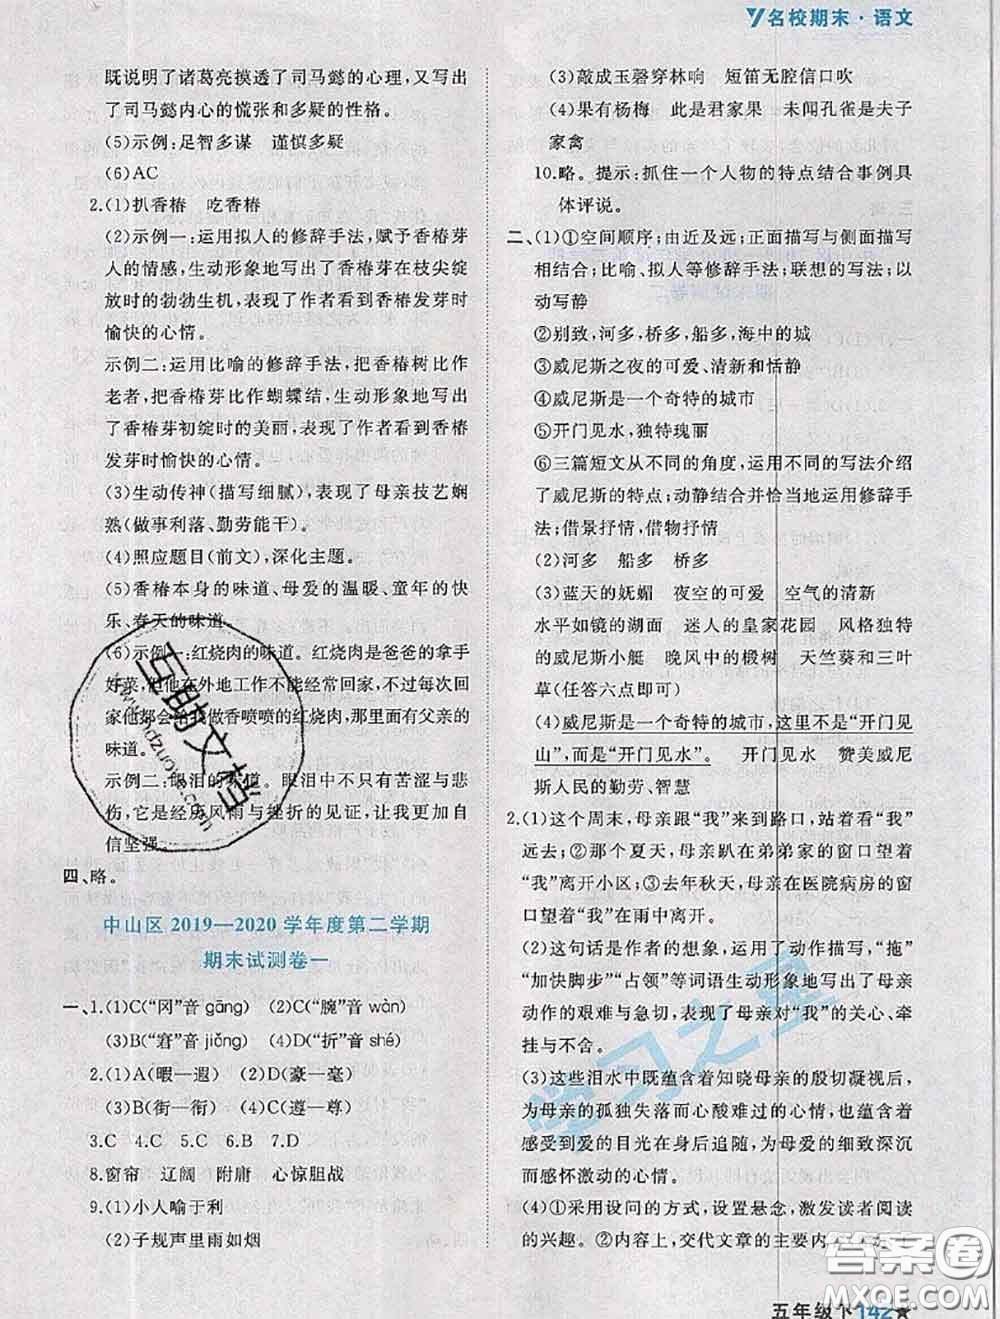 名校期末·语文
既说明了诸葛亮摸透了司马懿的心理,又写出
了司马懿内心的慌张和多疑的性格。
(5)示例:足智多谋 谨慎多疑
(6)AC
2.(1)扒香椿 吃香椿
(2)示例一:运用拟人的修辞手法,赋予香椿芽
人的情感,生动形象地写出了香椿芽在枝尖绽
放时的勃勃生机,表现了作者看到香椿发芽时
愉快的心情。
示例二:运用比喻的修辞手法,把香椿树比作
老者,把香椿芽比作蝴蝶结,生动形象地写出
了香椿芽初绽时的美丽,表现了作者看到香椿
发芽时愉快的心情。
(3)生动传神(描写细腻),表现了母亲技艺娴
熟(做事利落、勤劳能干)。
(4)照应题目(前文),深化主题。
(5)香椿本身的味道、母爱的温暖、童年的快
乐、春天的味道
(6)示例一:红烧肉的味道。红烧肉是爸爸的拿手
好菜,但他在外地工作不能经常回家,不过每次回
家他都会给我做香喷喷的红烧肉,那里面有父亲的
味道。
示例二:眼泪的味道。眼泪中不只有苦涩与悲
伤,它是经历风雨与挫折的见证,让我更加自
信坚强。
四、略。
中山区 2019—2020 学年度第二学期
期末试测卷一
一、1.(1)C(“冈”音 gāng) (2)C(“腕”音 wàn)
(3)B(“窘”音 jiǒng) (4)D(“折”音 shé)
2.(1)A(暇—遐) (2)D(豪—毫)
(3)B(街—衔) (4)C(遵—尊)
3.C 4.C 5.C 6.B 7.D
8.窗帘 辽阔 附庸 心惊胆战
9.(1)小人喻于利
(2)子规声里雨如烟
(3)敲成玉磬穿林响 短笛无腔信口吹
(4)果有杨梅 此是君家果 未闻孔雀是夫子
家禽
10.略。提示:抓住一个人物的特点结合事例具
体评说。
二、(1)①空间顺序;由近及远;正面描写与侧面描写
相结合;比喻、拟人等修辞手法;联想的写法;以
动写静
②别致,河多,桥多,船多,海中的城
③威尼斯之夜的可爱、清新和恬静
④威尼斯是一个奇特的城市
⑤开门见水,独特瑰丽
⑥三篇短文从不同的角度,运用不同的写法介绍
了威尼斯的特点;动静结合并恰当地运用修辞手
法;借景抒情,借物抒情
(2)河多 船多 桥多
(3)蓝天的妩媚 夜空的可爱 空气的清新
水平如镜的湖面 迷人的皇家花园 风格独特
的威尼斯小艇 晚风中的椴树 天竺葵和三叶
草(任答六点即可)
(4)威尼斯是一个奇特的城市,这里不是“开门见
山”,而是“开门见水”。 开门见水 赞美威尼
斯人民的勤劳、智慧
2.(1)①这个周末,母亲跟“我”来到路口,站着看“我”
远去;②那个夏天,母亲趴在弟弟家的窗口望着
“我”离开小区;③去年秋天,母亲在医院病房的
窗口望着“我”在雨中离开。
(2)这句话是作者的想象,运用了动作描写,“拖”
“加快脚步”“占领”等词语生动形象地写出了母
亲的艰难与急切,表现了母亲对“我”的关心、牵
挂与不舍。
(3)这些泪水中既蕴含着知晓母亲的殷切凝视后,
为母亲的孤独失落而心酸难过的心情,也蕴含着
感受到爱的目光在身后追随,为母爱的细致深沉
而感怀激动的心情。
(4)①采用设问的方式,设置悬念,激发读者阅读
的兴趣。②内容上,交代文章的主要内
五年级下 142
互助文档
www.hdzuoye.com
学习之星
答案圈
MXQE.COM